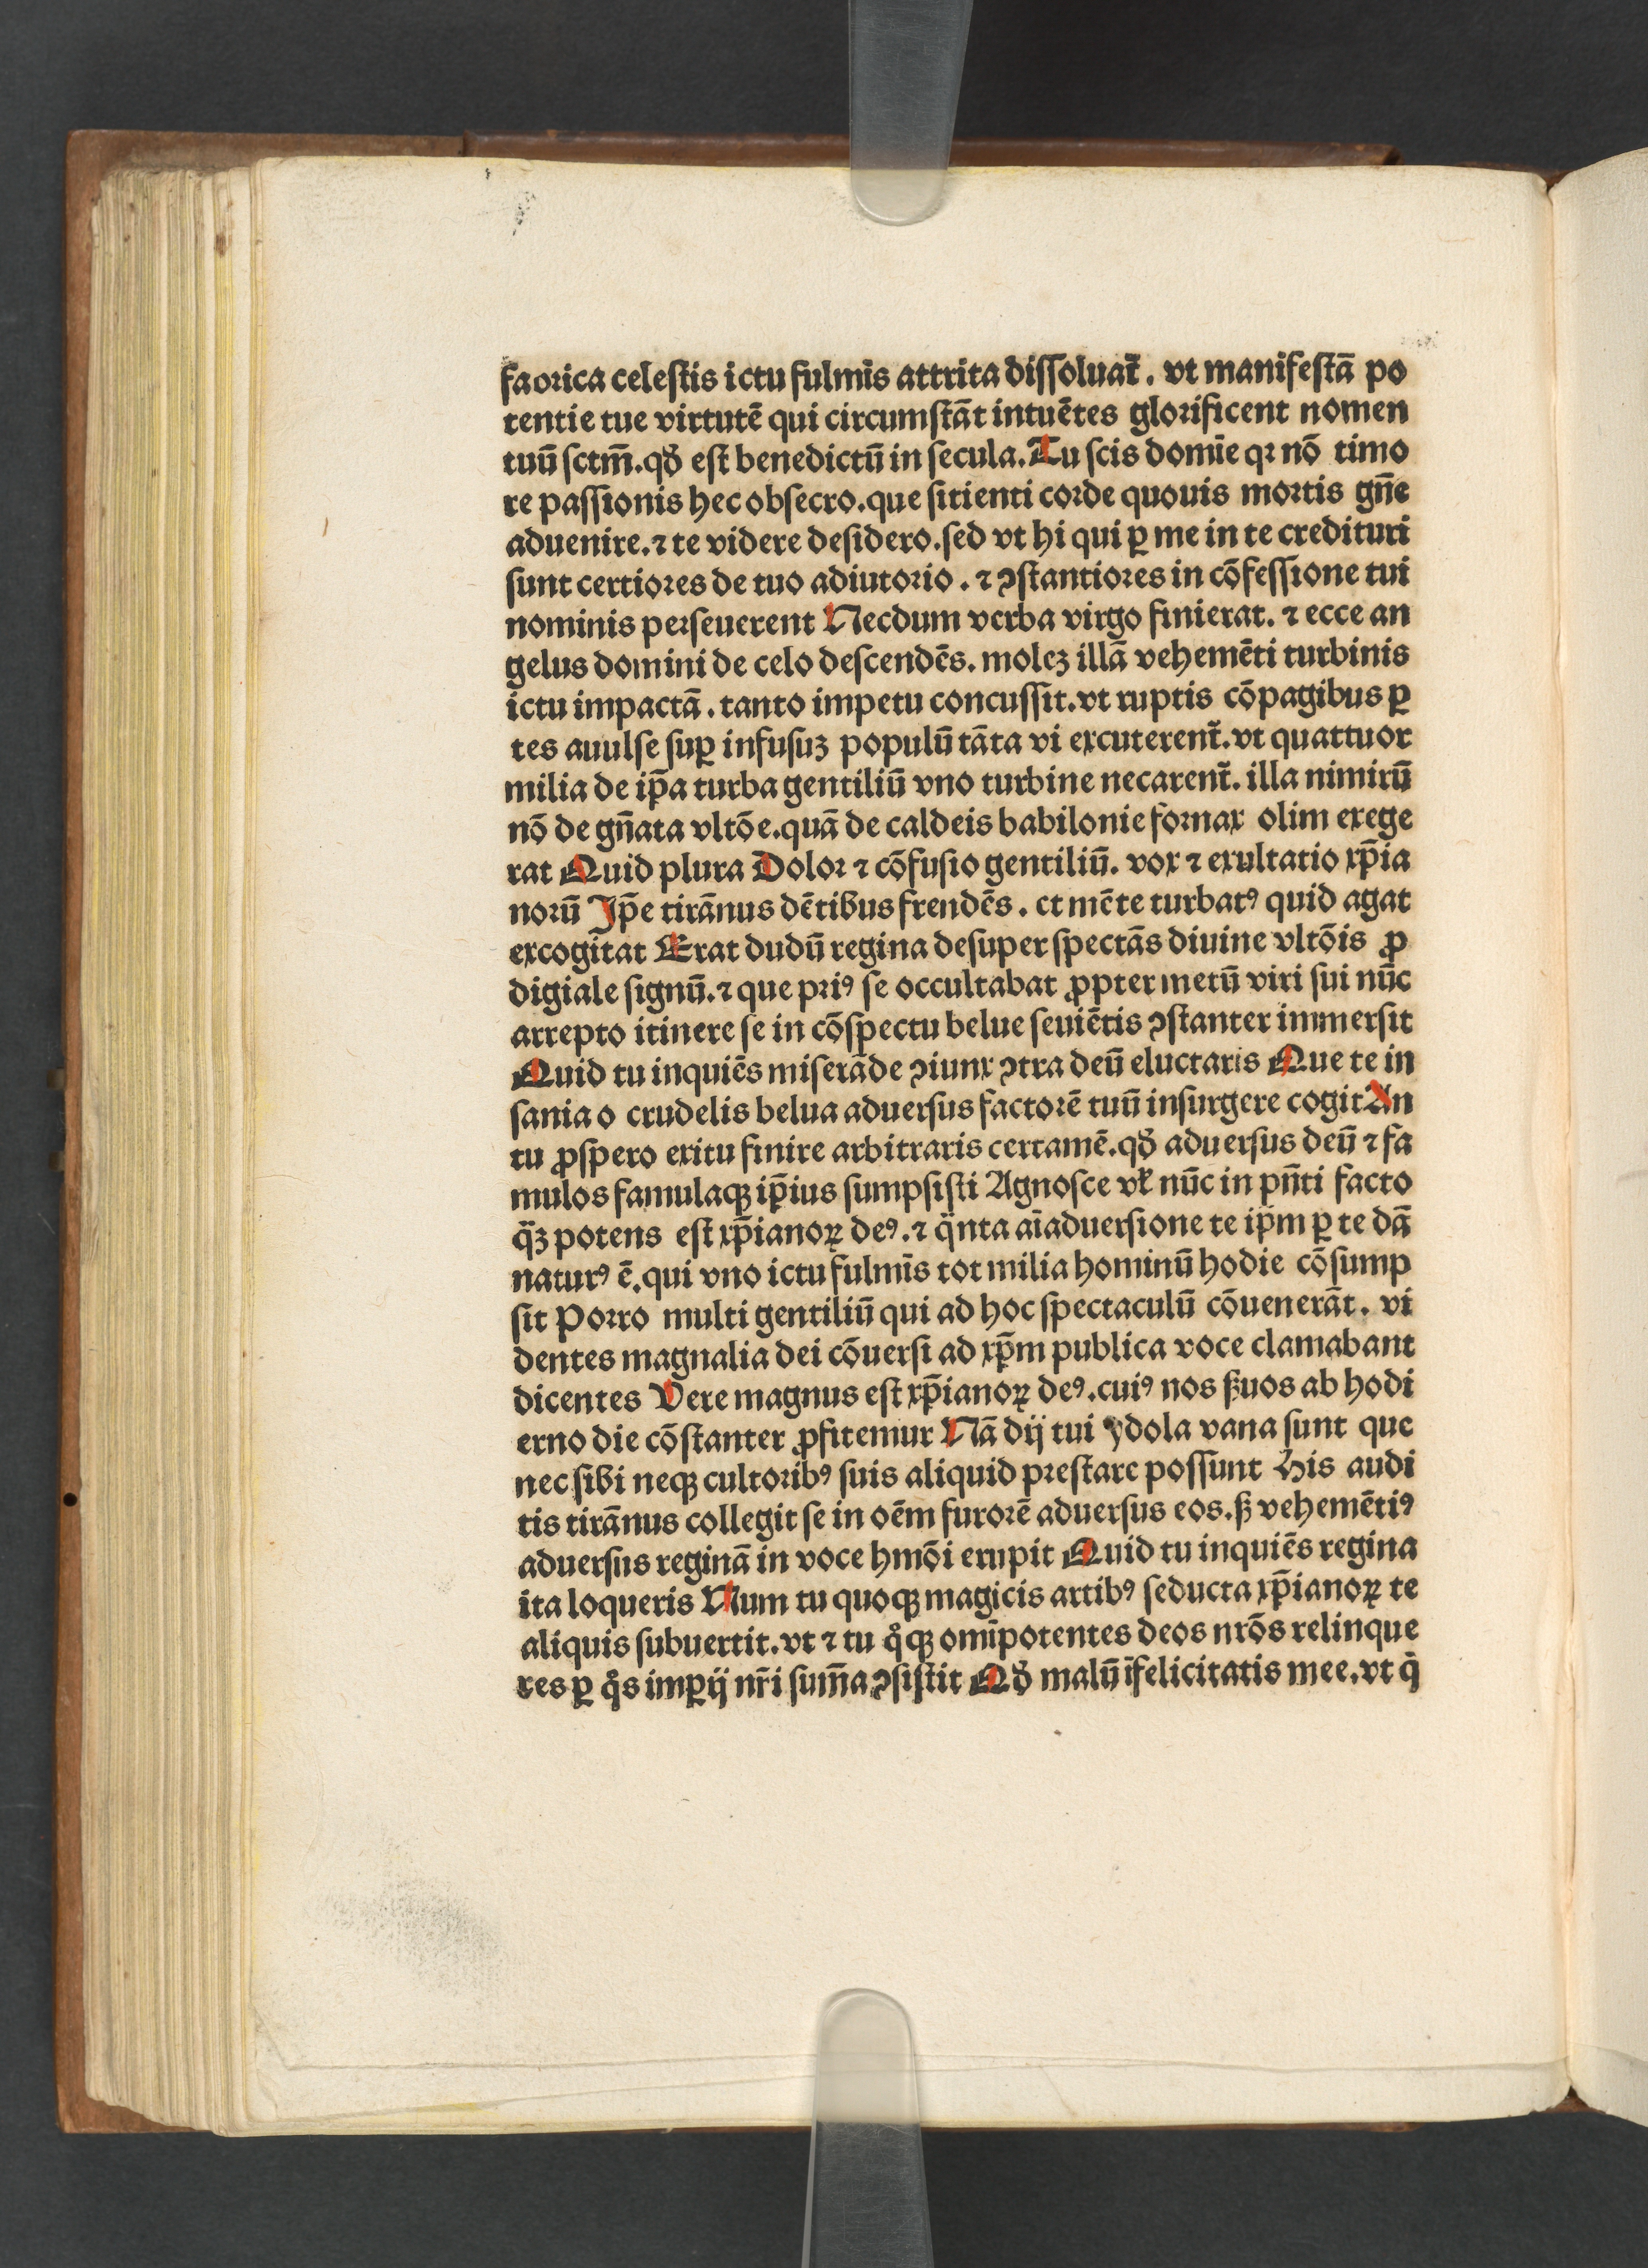 faorica celestis ictu fulmīs attrita dissoluat᷑. vt manifestā po
tentie tue virtutē qui circumstāt intuētes glorificent nomen
tuū sctm̄. qđ est benedictū in secula. Tu scis domīe qꝛ nō timo
re passionis hec obsecro. que sitienti corde quouis mortis gn̄e
aduenire. ⁊ te videre desidero. sed vt hi qui ꝑ me in te credituri
sunt certiores de tuo adiutorio. ⁊ ꝯstantiores in cōfessione tui
nominis perseuerent Necdum verba virgo finierat. ⁊ ecce an
gelus domini de celo descendēs. moleꝫ illā vehemēti turbinis
ictu impactā. tanto impetu concussit. vt ruptis cōpagibus ꝑ
tes auulse suꝑ infusuꝫ populū tāta vi excuterent᷑. vt quattuor
milia de ip̄a turba gentiliū vno turbine necarent᷑. illa nimirū
nō de gn̄ata vltōe. quā de caldeis babilonie fornax olim exege
rat Quid plura Dolor ⁊ cōfusio gentiliū. vox ⁊ exultatio xp̄ia
norū Ip̄e tirānus dētibus frendēs. et mēte turbatꝰ quid agat
excogitat Erat dudū regina desuper spectās diuine vltōis ꝓ
digiale signū. ⁊ que priꝰ se occultabat ꝓpter metū viri sui nūc
arrepto itinere se in cōspectu belue seuiētis ꝯstanter immersit
Quid tu inquiēs miserāde ꝯiunx ꝯtra deū eluctaris Que te in
sania o crudelis belua aduersus factorē tuū insurgere cogit An
tu ꝓspero exitu finire arbitraris certamē. qđ aduersus deū ⁊ fa
mulos famulasqꝫ ip̄ius sumpsisti Agnosce vł nūc in pn̄ti facto
qᷓꝫ potens est xp̄ianoꝝ deꝰ. ⁊ qᷓnta aīaduersione te ip̄m ꝑ te dā
naturꝰ ē. qui vno ictu fulmīs tot milia hominū hodie cōsump
sit Porro multi gentiliū qui ad hoc spectaculū cōuenerāt. vi
dentes magnalia dei cōuersi ad xp̄m publica voce clamabant
dicentes Vere magnus est xp̄ianoꝝ deꝰ. cuiꝰ nos ẜuos ab hodi
erno die cōstanter ꝓfitemur Nā dij tui ydola vana sunt que
nec sibi neqꝫ cultoribꝰ suis aliquid prestare possunt His audi
tis tirānus collegit se in oēm furorē aduersus eos. ẜ vehemētiꝰ
aduersus reginā in voce hmōi erupit Quid tu inquiēs regina
ita loqueris Num tu quoqꝫ magicis artibꝰ seducta xp̄ianoꝝ te
aliquis subuertit. vt ⁊ tu qͦqꝫ omīpotentes deos nrōs relinque
res ꝑ qͦs imꝑij nr̄i sum̄a ꝯsistit Qđ malū īfelicitatis mee. vt qͥ